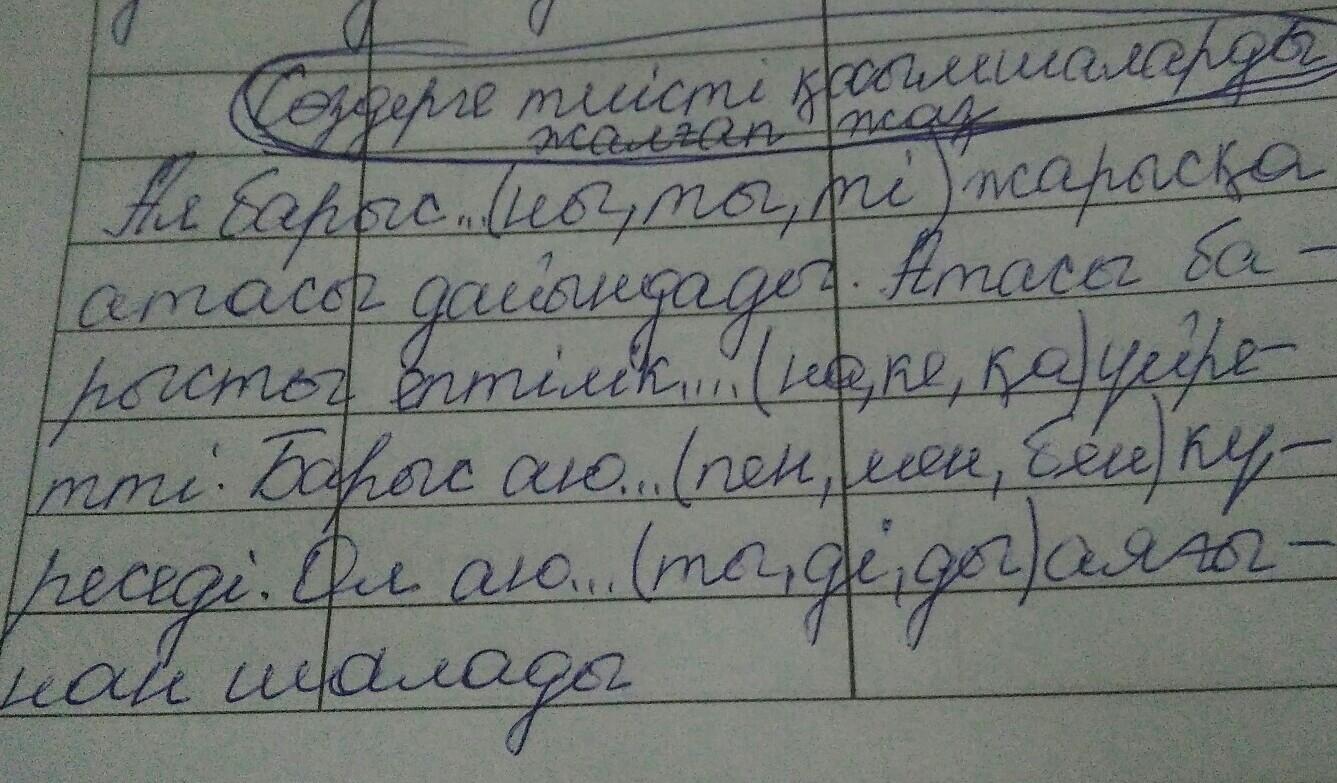 Сөздерге тиісті қосымшаларды
жалғап жаз
Ал барыс...(ны, ты, ті) жарысқа
атасы дайындады. Атасы ба-
рысты ептілік....(не, ке, қа) үйре-
тті. Барыс аю...(пен, мен, бен) кү-
реседі. Ол аю...(ты, ді, ды) аяғы-
нан шалады